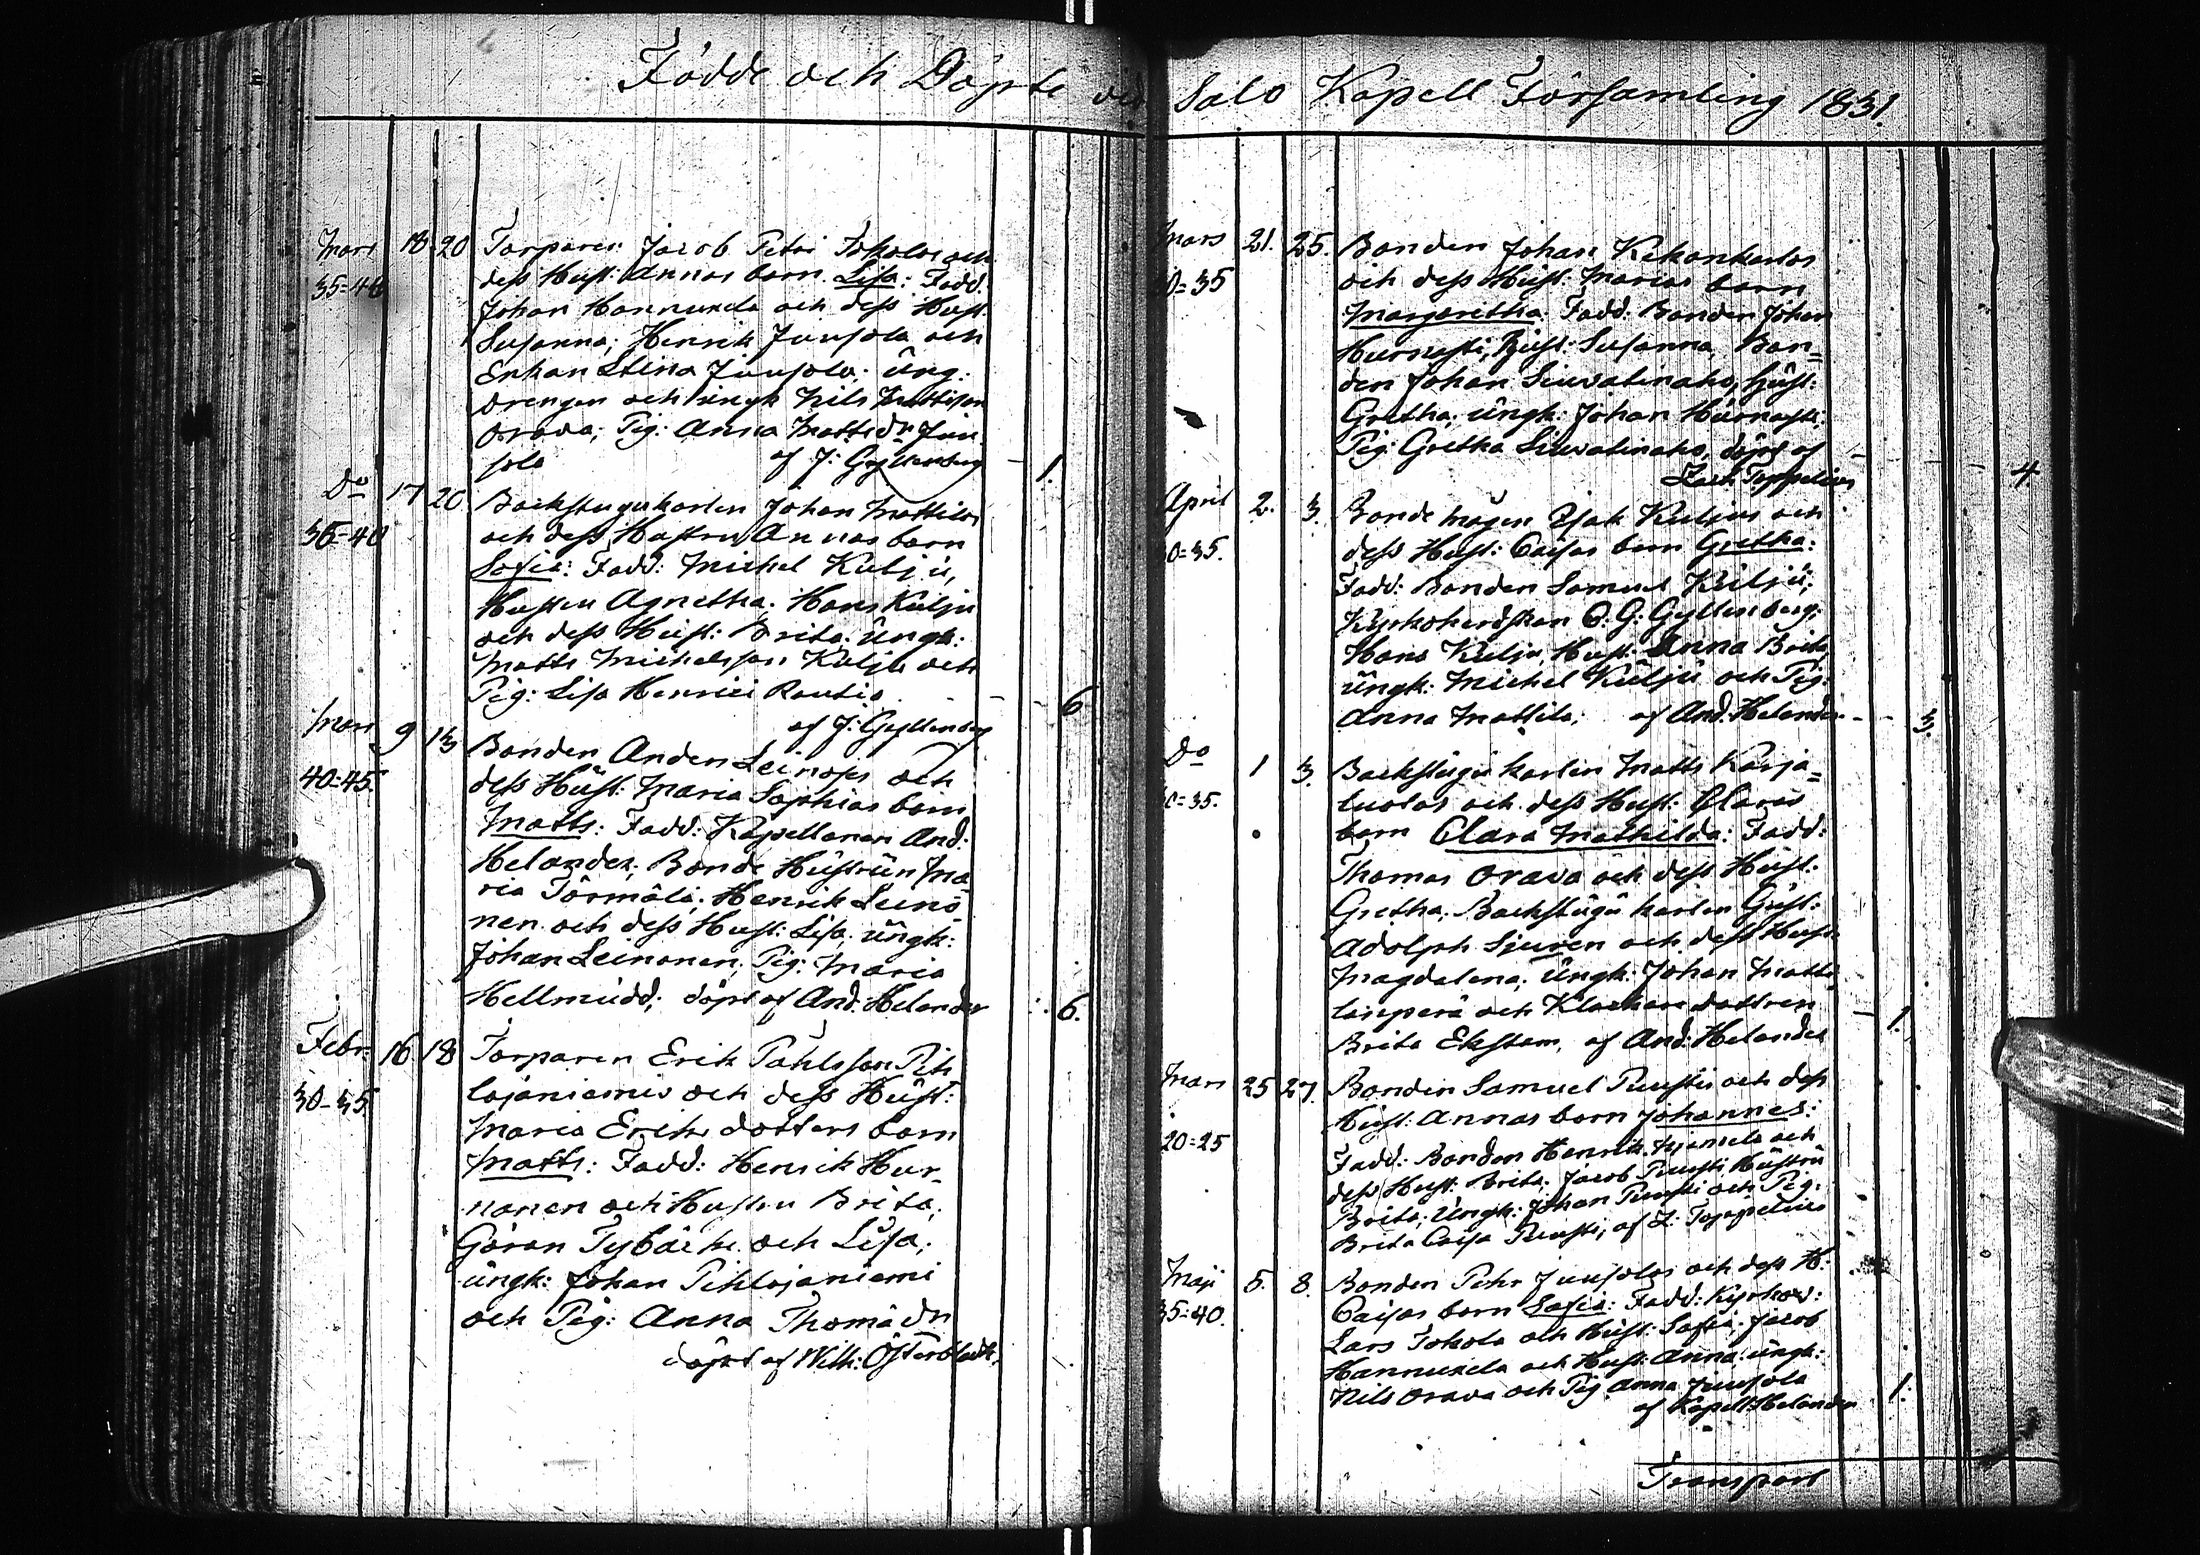 Födde och Döpte vid Salo Kapell Församling 1831.
Mars 18 20 Torparen Jacob Petri Jokelas och
35=40 dess Hust: Annas barn Lisa: Fadd.
Johan Hannuxela och dess Hust.
Susanna; Henrik Junsola och
Enkan Stina Junsola; ung:
Drengen och ungk Nils Mattsson
Orava; Pig: Anna Mattsdr Jun-
sola af J: Gyllenberg 1.
Do 17 20 Backstugukarlen Johan Mattilas
35=40 och dess Hustru Annas barn
Sofia: Fadd: Michel Kulju,
Hustru Agnetha. Hans Kulju
och dess Hust: Brita. ungk:
Matts Michelsson Kulju och
Pig: Lisa Henrici Rautio 6
af J: Gyllenberg
Mars 9 13 Bonden Anders Leinos och
40=45. dess Hust: Maria Sophias barn
Matts: Fadd: Kapellanen And:
Helander; Bonde Hustrun Ma-
ria Törmälä; Henrik Leino-
nen och dess Hust: Lisa; ungk:
Johan Leinonen; Pig: Maria
Hellmudd; döpt af And: Helander 6.
Febr. 16 18 Torparen Erik Påhlsson Pih-
30-35 lajaniemis och dess Hust:
Maria Eriks dotters barn
Matts: Fadd: Henrik Hur-
nanen och Hustru Brita;
Göran Tybäck och Lisa;
ungk: Johan Pihlajaniemi
och Pig: Anna Thomædr
döpt af Wilh: Österbladh.
Mars 21. 25. Bonden Johan
30=35 och dess Hust: Marias barn
Margaretha. Fadd: Bonden Johan
Hurnasti, Hust: Susanna, Bon=
den Johan Siuvatinaho, Hust:
Gretha; ungk: Johan Hurnasti;
Pig: Gretha Siuvatinaho, döpt af
Zach Toppelius 4
April 2. 3. Bonde mågen Isak Kuljus och
30=35. dess Hust: Caisas barn Gretha:
Fadd: Bonden Samuel Kulju;
Kyrkoherdskan C. G: Gyllenberg;
Hans Kulju, Hust: Anna Brita,
ungk: Michel Kulju och Pig:
Anna Mattila; af And. Helander 3.
Do 1 3 Backstugu karlen Matts Karja=
30=35. luotos och dess Hust: Claras
barn Clara Mathilda: Fadd:
Thomas Orava och dess Hust:
Gretha. Backstugu karlen Gust:
Adolph Sjuren och dess Hust:
Magdalena; ungk: Johan Matti
lanperä och Klockare dottren 1.
Brita Ekstam, af And: Helander
Mars 25 27. Bonden Samuel Puustis och dess
20=25 Hust: Annas barn Johannes:
Fadd: Bonden Henrik och
dess Hust: Brita; Jacob Puusti, Hustru
Brita; ungk: Johan Puusti och Pig:
Brita Caisa Puusti; af Z: Toppelius
Maji 5. 8. Bonden Pehr Junsolas och dess H:
35=40. Caisas barn Sofia: Fadd: Kyrkov:
Lars Jokela och Hust: Sofia; Jacob
Hannuxela och Hust: Anna; ungk:
Nils Orava och Pig Anna Junsola 1.
af Kapell: Helander
Transport